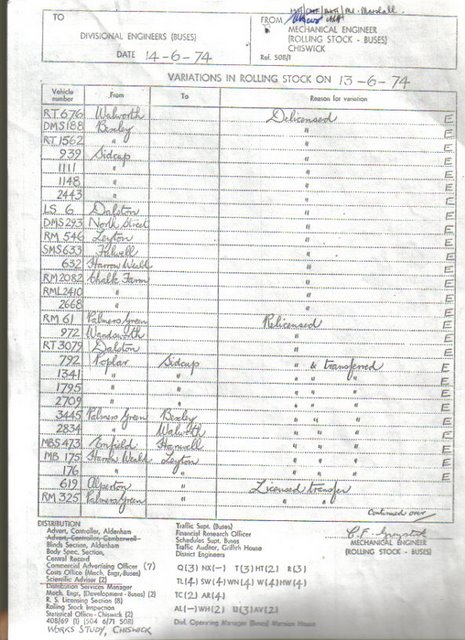 TO
DIVISIONAL ENGINEERS (BUSES)
DATE 14-6-74
FROM
MECHANICAL ENGINEER
(ROLLING STOCK - BUSES)
CHISWICK
Ref. 508/1
VARIATIONS IN ROLLING STOCK ON 13-6-74
Vehicle number From To Reason for variation
RT 676 Walworth Delicensed E
DMS 188 Bexley " E
RT 1562 " " E
939 Sidcup " E
1111 " " E
1148 " " E
2443 " " E
LS 6 Dalston " E
DMS 293 North Street " E
RM 546 Leyton " E
SMS 633 Fulwell " E
632 Harrow Weald " E
RM 2082 Chalk Farm " E
RML 2410 " " E
2668 " " E
RM 61 Palmers Green Relicensed E
972 Wandsworth " E
RT 3079 Dalston " E
792 Poplar Sidcup " & transferred E
1341 " " " " " E
1795 " " " " " E
2709 " " " " " E
3445 Palmers Green Bexley " " " E
2834 " Walworth " " " E
MBS 473 Enfield Hanwell " " " E
MB 175 Harrow Weald Leyton " " " E
176 " " " " " E
619 Alperton " Licensed transfer E
RM 325 Palmers Green " " " E
Continued over
DISTRIBUTION
Advert. Controller, Aldenham
Advert. Controller, Camberwell
Blinds Section, Aldenham
Body Spec. Section,
Central Record
Commercial Advertising Officer (7)
Costs Office (Mech. Engr, Buses)
Scientific Adviser (2)
Distribution Services Manager
Mech. Engr. (Development - Buses) (2)
R. S. Licensing Section (8)
Rolling Stock Inspection
Statistical Office - Chiswick (2)
408/69 (1) (504 6/71 508)
WORKS STUDY, CHISWICK
Traffic Supt. (Buses)
Financial Research Officer
Schedules Supt. Buses
Traffic Auditor, Griffith House
District Engineers
Q(3) NX(-) T(3) HT(2) R(3)
TL(4) SW(4) WN(4) W(4) HW(4)
TC(2) AR(4)
AL(-) WH(2) U(3) AV(2)
Dist. Operating Manager (Buses) Mansion House
MECHANICAL ENGINEER
(ROLLING STOCK - BUSES)